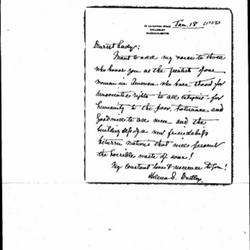 Jan. 18
Dearest Lady:
I want to add my voice to those
who honor you as the greatest
woman in America who have stood for
democratic rights to all citizens - for
humanity to the poor, tolerance and
good will to all men - and the
building up of a new friendship
between nations that will prevent
the horrible waste of war!
My constant love & reverence to you!